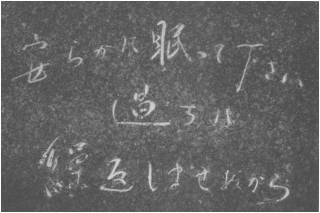 安らかに眠って下さい
過ちは
繰返しませぬから